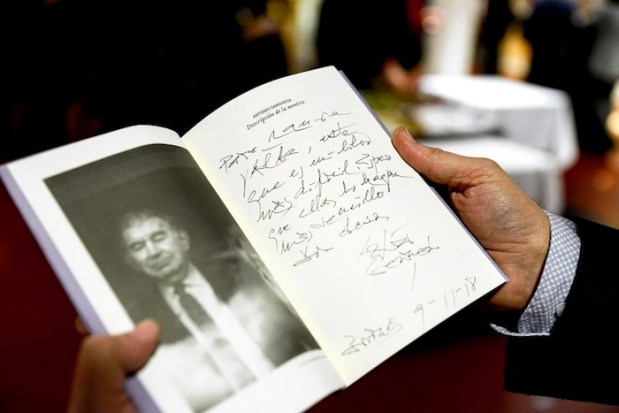 ANTONIO GAMONEDA
Descripción de la mentira
Para
y Alba, este
que es mi libro
más difícil. Espero
que ellas lo hagan
más sencillo
Dos besos
9-11-18